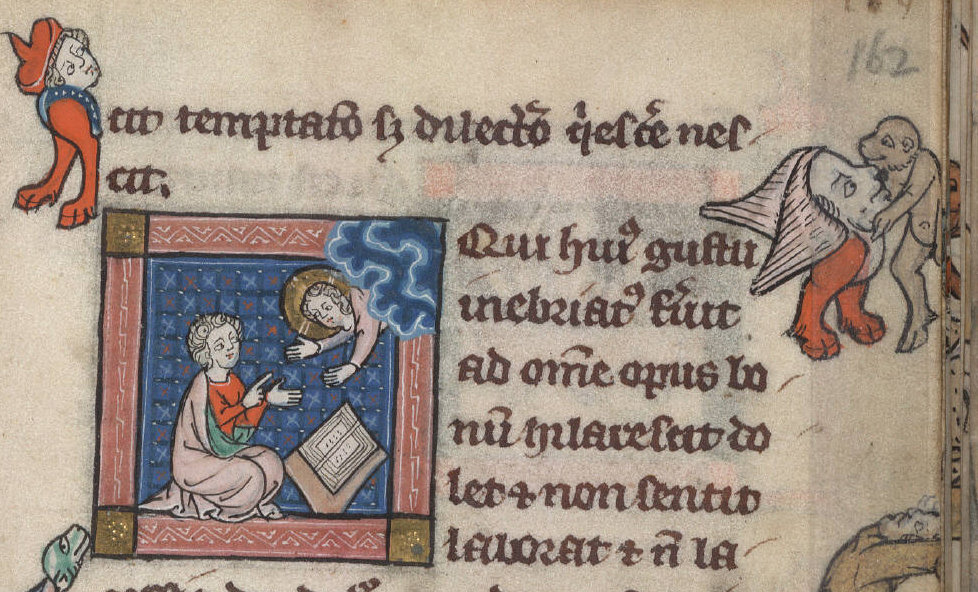 162
cit temptatō sꝫ dilectō qͥesce᷑ nes
cit.
Qui huiꝰ gustu
inebriatꝰ fu᷑it
ad om̄e opus bo
nū hilarescit do
let ⁊ non sentit
laborat ⁊ n̄ la